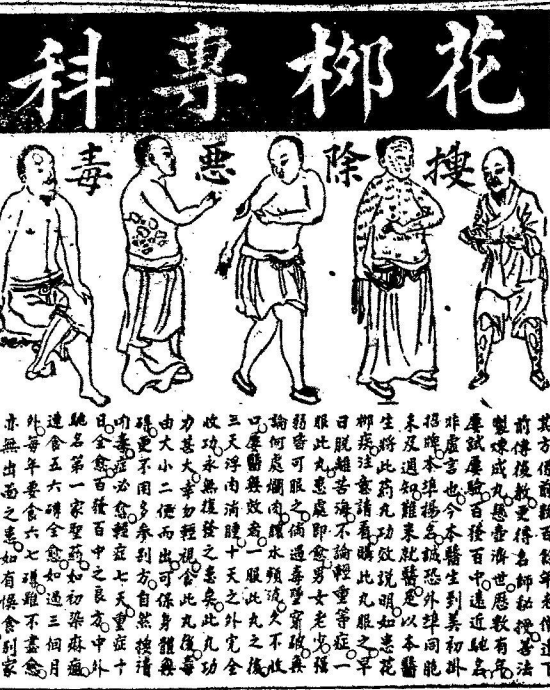 花柳專科
搜除惡毒
其方傳前數百餘年老僧遺下
前傳後教更得名師秘授善法
製煉成丸懸壺濟世歷數有年
屢試屢驗百發百中遠近馳名
非虛言也今本醫生到美初掛
招牌本埠揚名誠恐外埠同胞
未及週知難來就醫是以本醫
生將此葯丸功效說明如患花
柳疾注意請看購此丸服之早
日脫離苦海不論輕重等症一
服此丸患處即愈男女老少強
弱皆可服之倘過毒瘡穿破無
論何處爛肉膿水頻流久不收
口屢醫無效者一服此丸之後
三天浮肉消腫十天之外完全
收功永無復發之患矣此丸功
力甚大幸勿輕視食此丸後毒
由大小二便而出可保身體無
碍更不用多參到方自然換清
內毒症必愈輕症七天重症十
日全愈百發百中之良方中外
馳名第一家聖葯如初染麻痘
連食五六磅全愈如過三個月
外每年要食六七磅雖不盡愈
亦無出面之患如有悞食別家